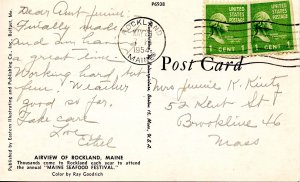 P6938
Dear Aunt Jennie,
Finally made
and Im having
a great time.
Working hard, but
fun. Weather
good so far.
Take care
Love,
Ethel
ROCKLAND
1954
MAINE
1 CENT 1
1 CENT 1
Post Card
Mrs Jennie K. Kurtz
52 Kent St
Brookline 46
Mass
Published by Eastern Illustrating and Publishing Co., Inc., Belfast, Me.
AIRVIEW OF ROCKLAND, MAINE
Thousands come to Rockland each year to attend
the annual "MAINE SEAFOOD FESTIVAL."
Color by Ray Goodrich